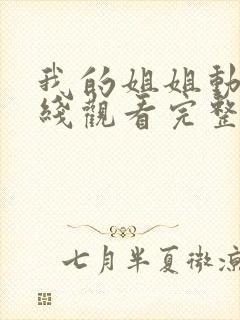 我的姐姐動
綫觀看完整
七月半夏微涼